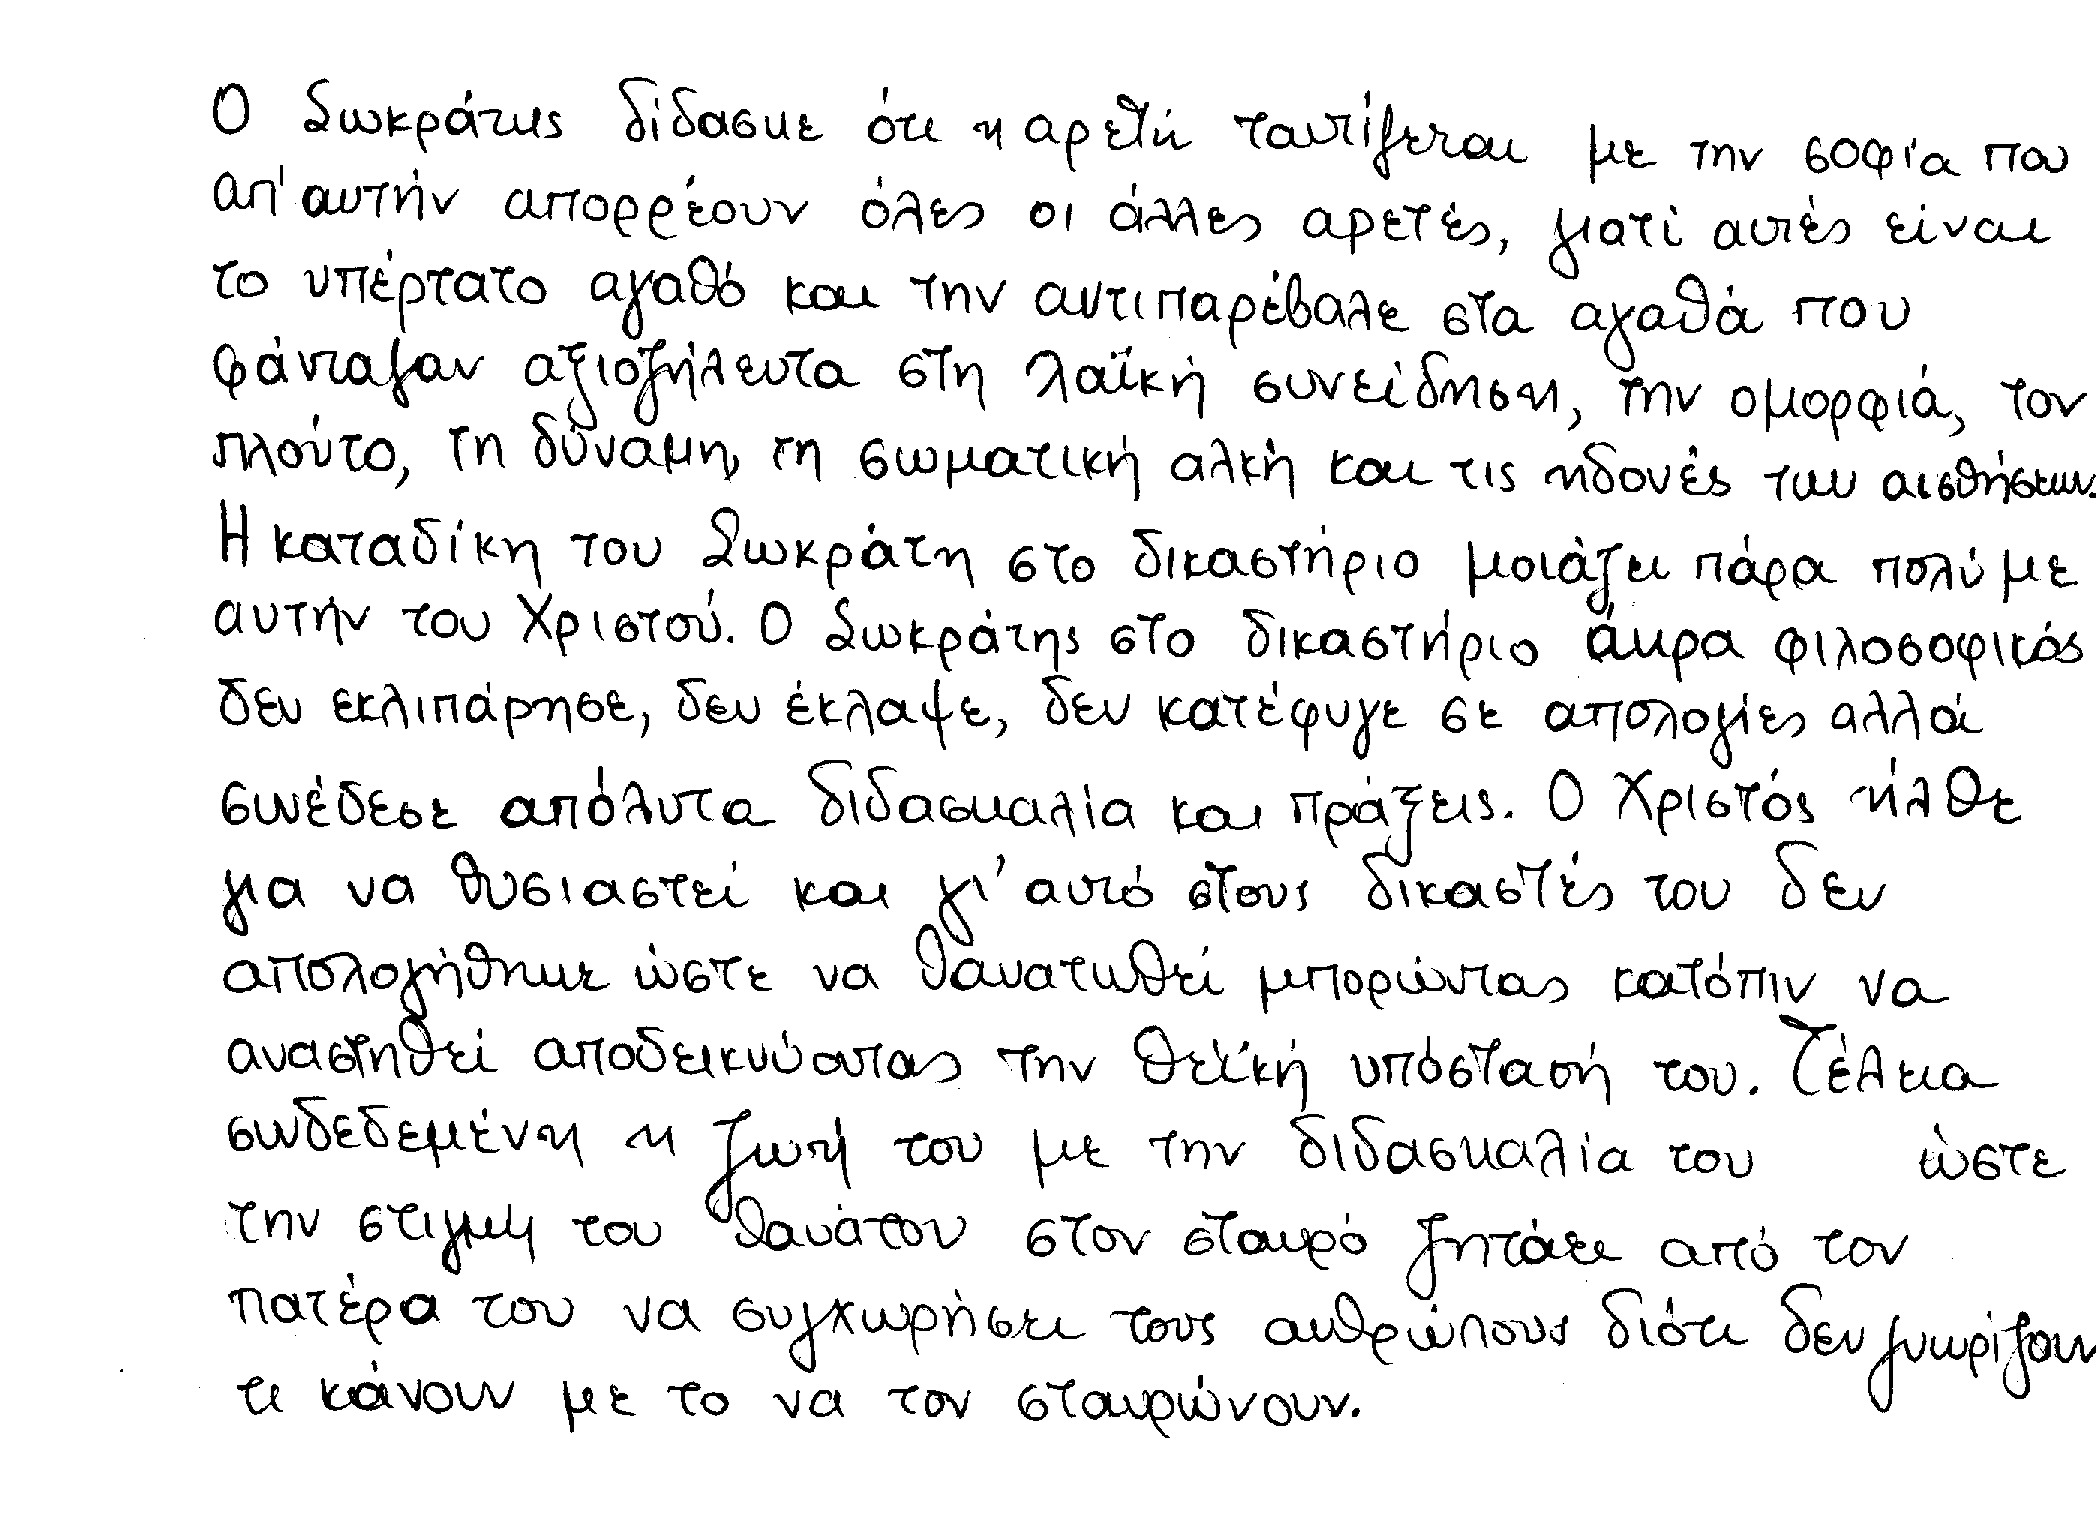 Ο Σωκράτης δίδασκε ότι η αρετή ταυτίζεται με την σοφία που
απ' αυτήν απορρέουν όλες οι άλλες αρετές, γιατί αυτές είναι
το υπέρτατο αγαθό και την αντιπαρέβαλε στα αγαθά που
φάνταζαν αξιοζήλευτα στη λαϊκή συνείδηση, την ομορφιά, τον
πλούτο, τη δύναμη, τη σωματική αλκή και τις ηδονές των αισθήσεων.
Η καταδίκη του Σωκράτη στο δικαστήριο μοιάζει πάρα πολύ με
αυτήν του Χριστού. Ο Σωκράτης στο δικαστήριο άκρα φιλοσοφικός
δεν εκλιπάρησε, δεν έκλαψε, δεν κατέφυγε σε απολογίες αλλά
συνέδεσε απόλυτα διδασκαλία και πράξεις. Ο Χριστός ήλθε
για να θυσιαστεί και γι' αυτό στους δικαστές του δεν
απολογήθηκε ώστε να θανατωθεί μπορώντας κατόπιν να
αναστηθεί αποδεικνύοντας την θεϊκή υπόστασή του. Τέλεια
συνδεδεμένη η ζωή του με την διδασκαλία του ώστε
την στιγμή του θανάτου στον σταυρό ζητάει από τον
πατέρα του να συγχωρήσει τους ανθρώπους διότι δεν γνωρίζουν
τι κάνουν με το να τον σταυρώνουν.